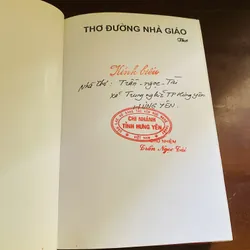 THƠ ĐƯỜNG NHÀ GIÁO
Thơ
Kính biếu
Nhà thơ: Trần - ngọc - Tài
xã Trung nghĩa TP Hưng yên
HƯNG YÊN
CHI NHÁNH
TỈNH HƯNG YÊN
CHỦ NHIỆM
Trần Ngọc Tài